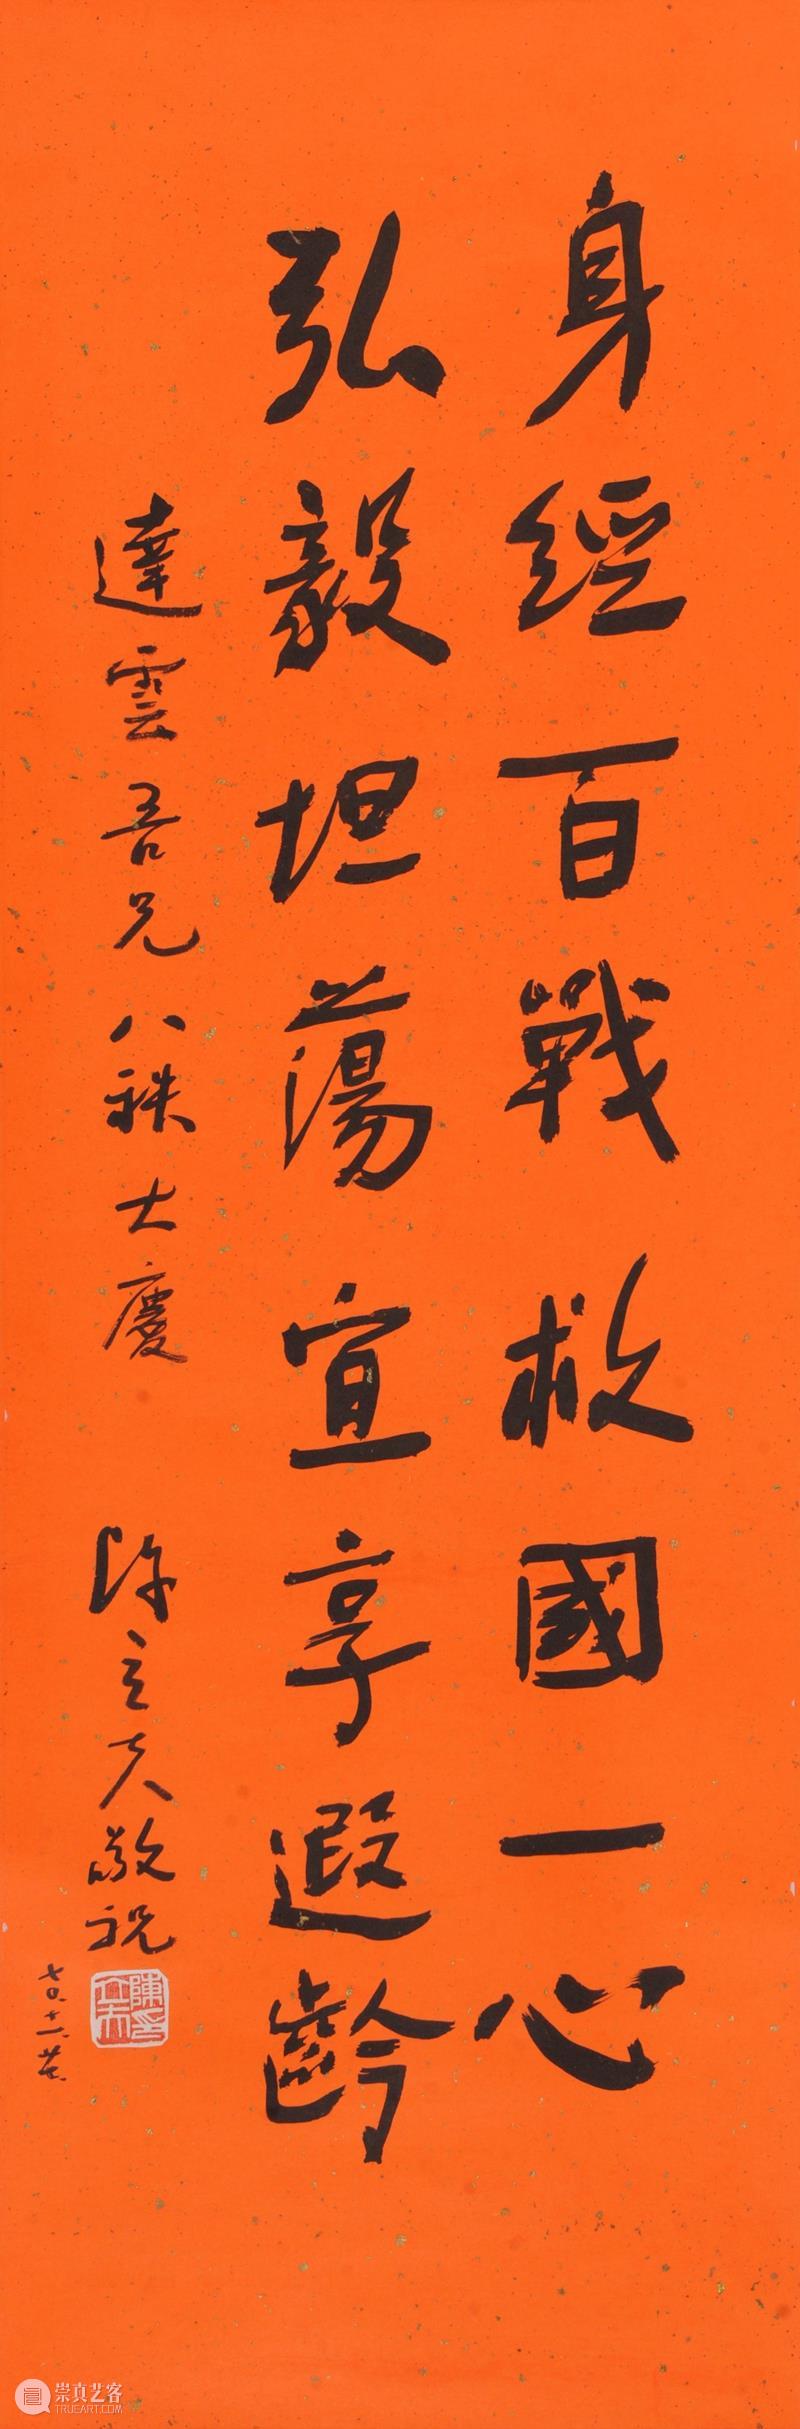 身經百戰救國一心
弘毅坦蕩宜享遐齡
達雲吾兄八秩大慶
陳立夫敬祝
七〇.十二.廿.
陳立夫印
崇真艺客
TRUEART.COM